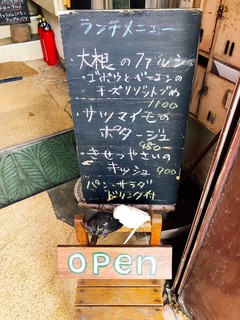 ランチメニュー
大根のファルシ
・ゴボウとベーコンの
チーズリゾットづめ
1100
・サツマイモの
ポタージュ
・きせつやさいの
キッシュ 900
パン・サラダ
ドリンク付
OPEN